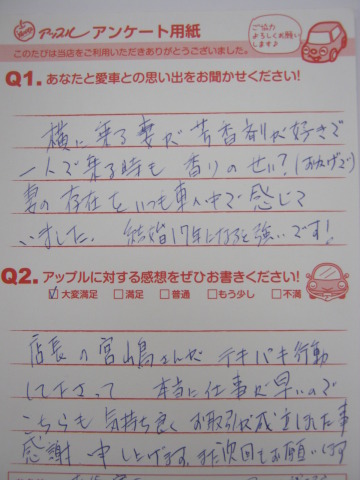 アップル アンケート用紙
ご協力
よろしくお願い
します♪
このたびは当店をご利用いただきありがとうございました。
Q1. あなたと愛車との思い出をお聞かせください!
横に乗る妻が芳香剤が好きで
一人で乗る時も 香りのせい?(おかげで)
妻の存在をいつも車中で感じて
いました。結婚17年になると強いです!
Q2. アップルに対する感想をぜひお書きください!
☑大変満足 □満足 □普通 □もう少し □不満
店長の宮嶋さんが テキパキ行動
して下さって 本当に仕事が早いので
こちらも気持ち良く お取引が成立した事
感謝 申し上げます。また次回もお願いします